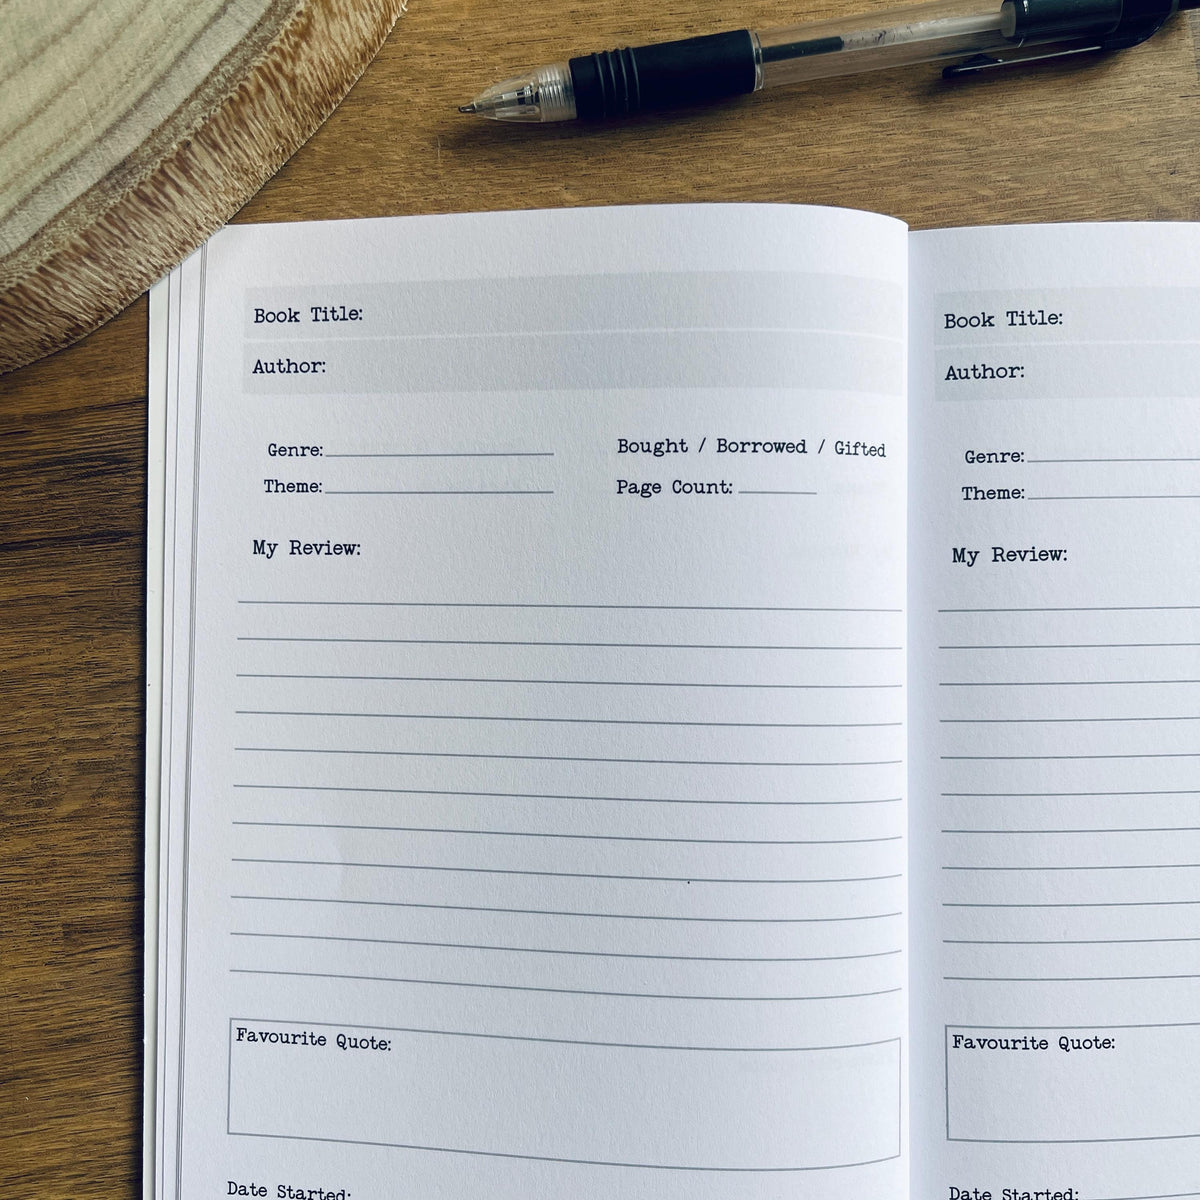 Book Title:
Author:
Genre:
Bought / Borrowed / Gifted
Theme:
Page Count:
My Review:
Favourite Quote:
Date Started:
Book Title:
Author:
Genre:
Theme:
My Review:
Favourite Quote:
Date Started: